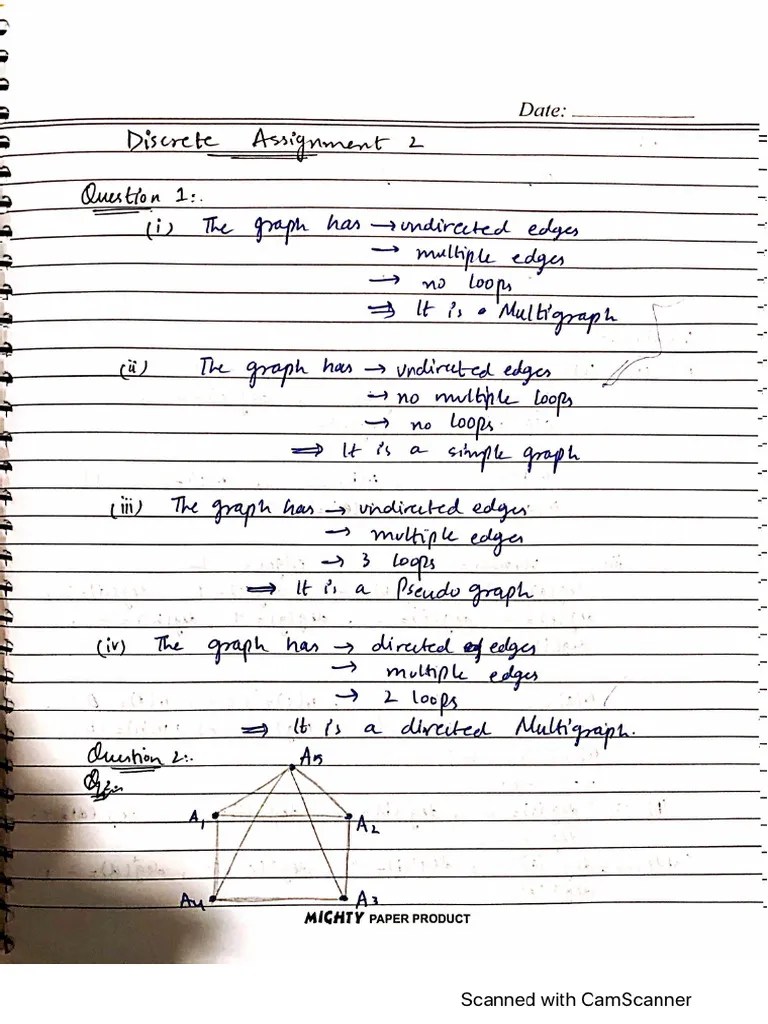 Date:
Discrete Assignment 2
Question 1:.
(i) The graph has → undirected edges
→ multiple edges
→ no loops
⇒ It is a Multigraph
(ii) The graph has → undirected edges
→ no multiple loops
→ no loops.
⇒ It is a simple graph
(iii) The graph has → undirected edges
→ multiple edges
→ 3 loops
⇒ It is a Pseudo graph
(iv) The graph has → directed edges
→ multiple edges
→ 2 loops
⇒ It is a directed Multigraph.
Question 2:.
A5
A1
A2
A4
A3
MIGHTY PAPER PRODUCT
Scanned with CamScanner